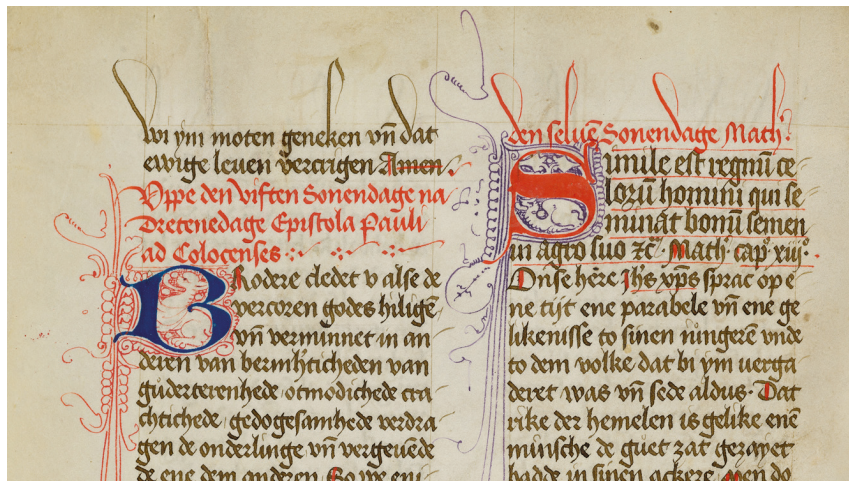 wi ym moten geneken vn̄ dat
ewige leuen vercrigen Amen.
Oppe den viften Sonendage na
Dretenedage Epistola Pauli
ad Colocenses
Brodere cledet v alse de
vercoren godes hilige
vn̄ verminnet in an
deren van bermhticheden van
guderterenhede otmodichede tra
chtichede gedogesamhede verdra
gen de onderlinge vn̄ vergeuede
de ene dem anderen So we eni
den seluē Sonendage Math.
Simile est regnū ce
lorū homini qui se
minat bonū semen
in agro suo ꝛc. Math. cap. xiij.
Onse here Jhs xp̄s sprac op e
ne tijt ene parabele vn̄ ene ge
likenisse to sinen iungerē vnde
to dem volke dat bi ym verga
deret was vn̄ sede aldus. Dat
rike der hemelen is gelike enē
minsche de guet zat gezayet
hadde in sinen ackere Men do